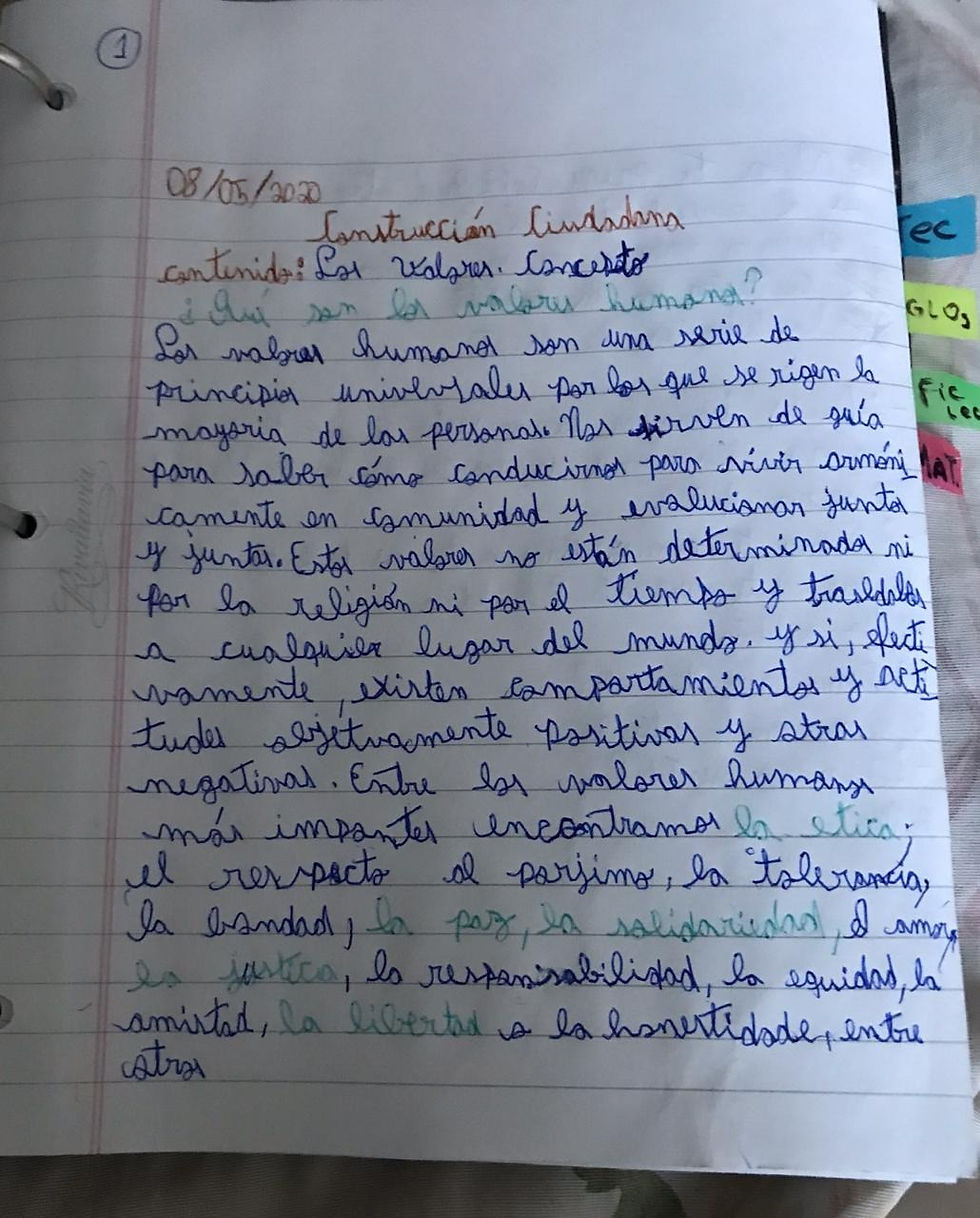 1
08/05/2020
Construcción Ciudadana
contenido: Los valores. Concepto
¿Qué son los valores humanos?
Los valores humanos son una serie de
principios universales por los que se rigen la
mayoria de las personas. Nos sirven de guía
para saber cómo conducirnos para vivir armóni
camente en comunidad y evolucionar juntos
y juntas. Estos valores no están determinados ni
por la religión ni por el tiempo y
a cualquier lugar del mundo. y si, efecti
vamente, existen comportamientos y acti
tudes objetvamente positivas y otras
negativas. Entre los valores humanos
más impontes encontramos la etica,
el respecto al porjimo, la tolerancia,
la bondad, la paz, la solidariedad, el amor,
la justica, la responsabilidad, la equidad, la
amistad, la libertad o la honestidade, entre
otros
Tec
GLOS
Fic
Lec
MAT.